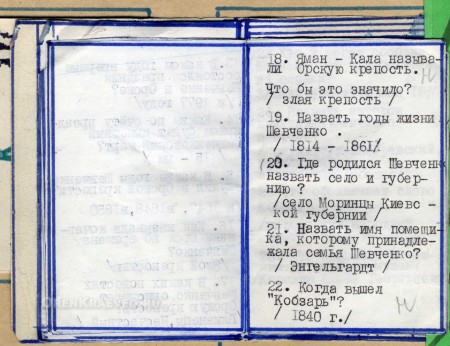 18. Яман - Кала называ-
ли Орскую крепость.
Что бы это значило?
/ злая крепость /
19. Назвать годы жизни
Шевченко .
/ 1814 - 1861/
20. Где родился Шевченк
назвать село и губер-
нию ?
/село Моринцы Киевс -
кой губернии /
21. Назвать имя помещи-
ка, которому принадле-
жала семья Шевченко?
/ Энгельгардт /
22. Когда вышел
"Кобзарь"?
/ 1840 г./